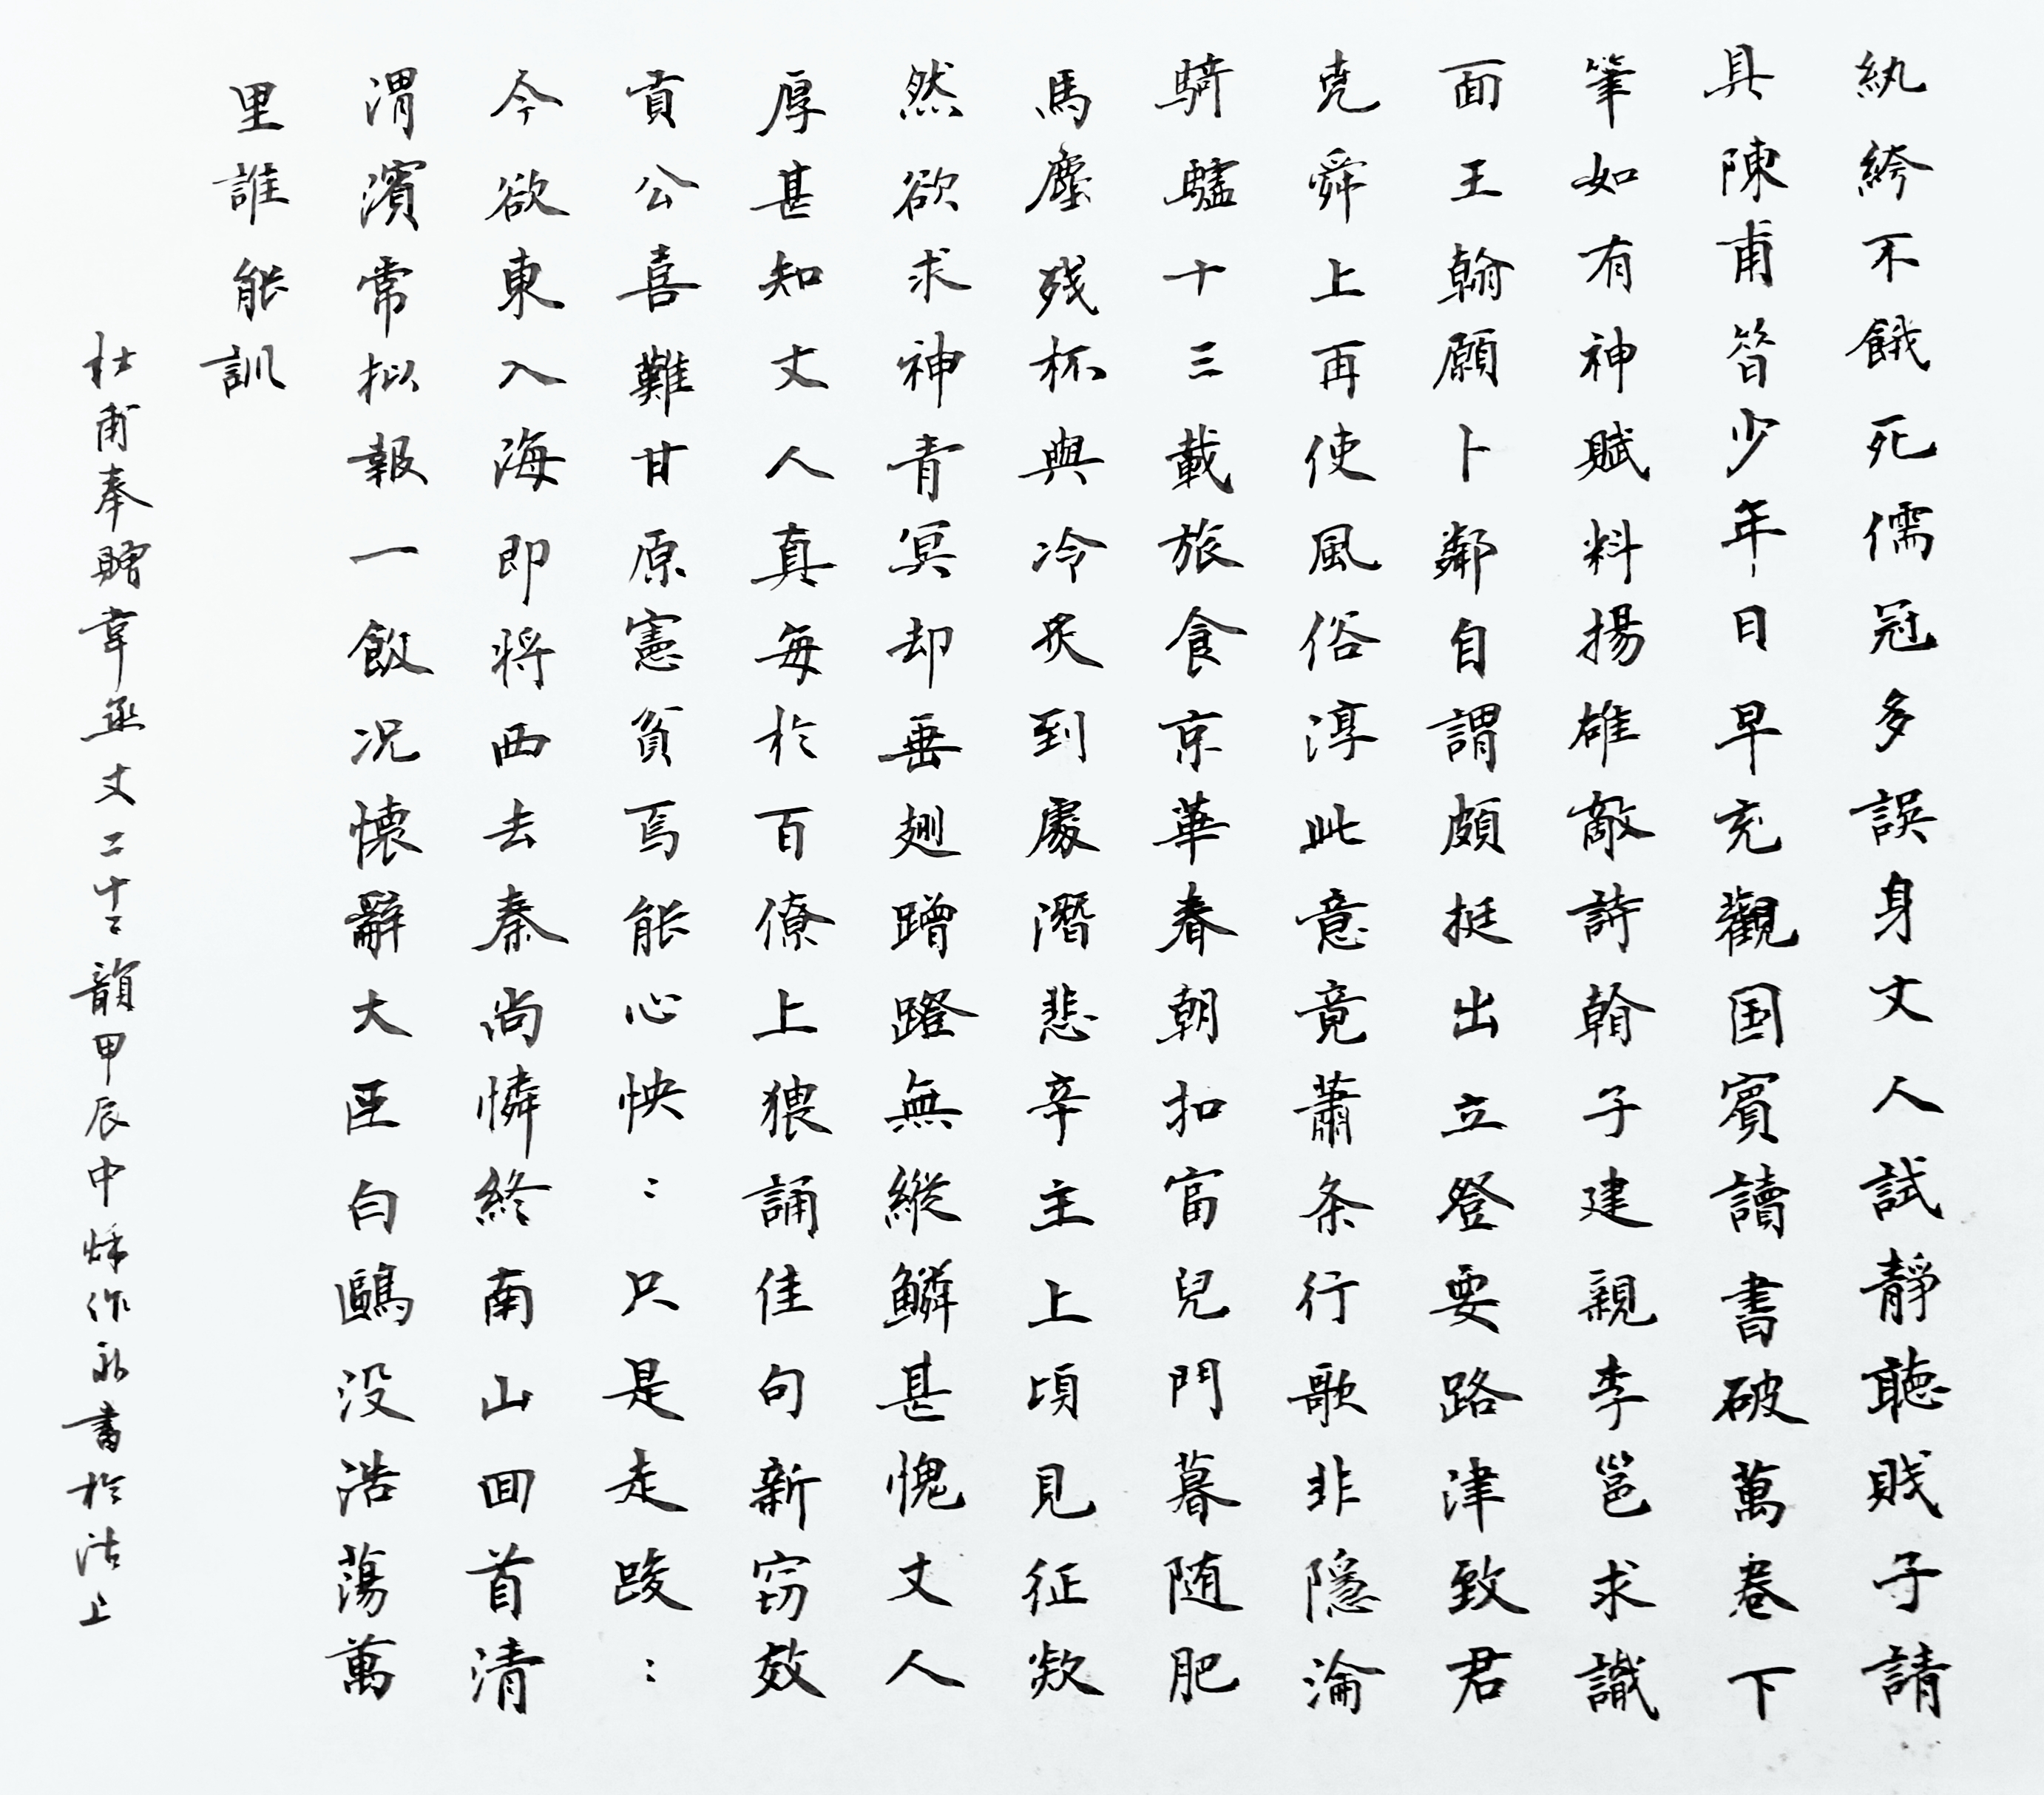 紈絝不餓死儒冠多誤身丈人試靜聽賤子請
具陳甫昔少年日早充觀国賓讀書破萬卷下
筆如有神賦料揚雄敵詩看子建親李邕求識
面王翰願卜鄰自謂頗挺出立登要路津致君
堯舜上再使風俗淳此意竟蕭条行歌非隱淪
騎驢十三載旅食京華春朝扣富兒門暮随肥
馬塵残杯與冷炙到處潛悲辛主上頃見征歘
然欲求神青冥却垂翅蹭蹬無縱鱗甚愧丈人
厚甚知丈人真每於百僚上猥誦佳句新窃效
貢公喜難甘原憲貧焉能心怏：只是走踆：
今欲東入海即將西去秦尚憐終南山回首清
渭濱常拟報一飯况懷辭大臣白鷗没浩蕩萬
里誰能訓
杜甫奉贈韋丞丈二十二韻甲辰中秋作永書於法上